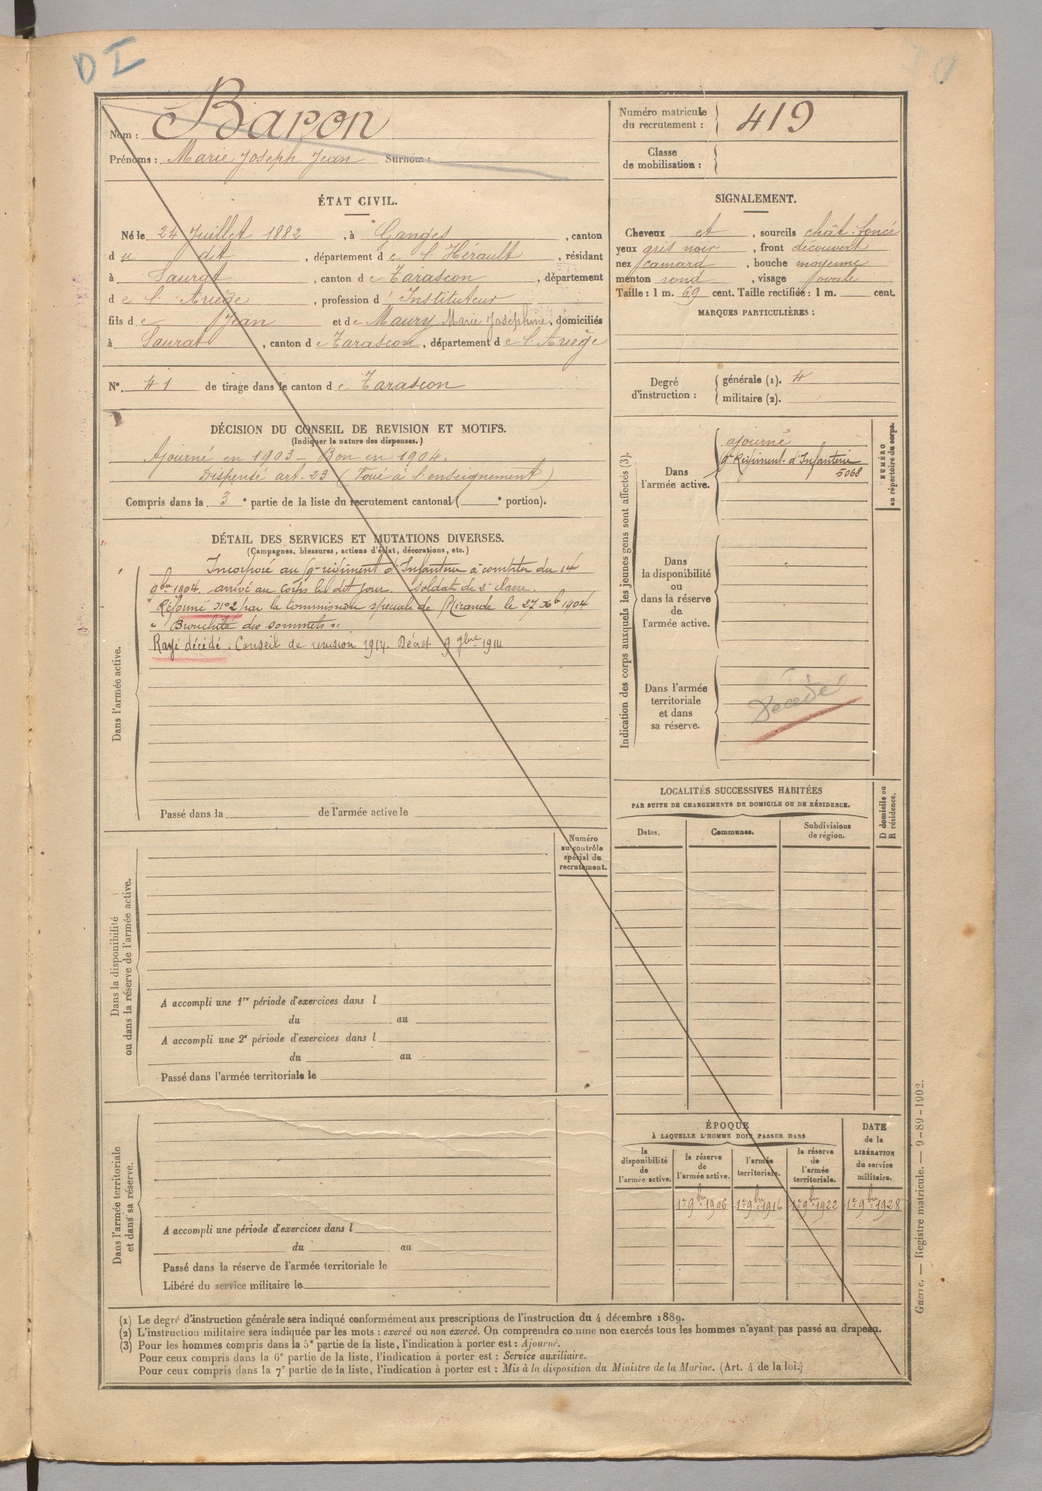 DI
Nom : Baron
Prénoms : Marie Joseph Jean Surnom :
Numéro matricule
du recrutement : 419
Classe
de mobilisation :
ÉTAT CIVIL.
Né le 24 Juillet 1882, à Ganges, canton
du dit, département de l'Hérault, résidant
à Saurat, canton de Tarascon, département
de l'Ariège, profession d'Instituteur
fils de Jean et de Maury Marie Joséphine, domiciliés
à Saurat, canton de Tarascon, département de l'Ariège
N°. 41 de tirage dans le canton de Tarascon
SIGNALEMENT.
Cheveux et, sourcils chât. foncé
yeux gris noir, front découvert
nez camard, bouche moyenne
menton rond, visage ovale
Taille : 1 m. 69 cent. Taille rectifiée : 1 m. cent.
MARQUES PARTICULIÈRES :
Degré
d'instruction :
générale (1). 4
militaire (2).
DÉCISION DU CONSEIL DE REVISION ET MOTIFS.
(Indiquer la nature des dispenses.)
Ajourné en 1903 – Bon en 1904.
Dispensé art. 23 (Voué à l'enseignement)
Compris dans la 3e partie de la liste du recrutement cantonal ( e portion).
DÉTAIL DES SERVICES ET MUTATIONS DIVERSES.
(Campagnes, blessures, actions d'éclat, décorations, etc.)
Dans l'armée active.
Incorporé au 9e régiment d'Infanterie à compter du 14
9bre 1904, arrivé au corps le dit jour. Soldat de 2e classe.
Réformé n°2 par la Commission spéciale de Mirande le 27 Xb 1904
"Bronchite des sommets".
Rayé décédé. Conseil de revision 1914. Décret 9 7bre 1914
Passé dans la de l'armée active le
Indication des corps auxquels les jeunes gens sont affectés (3).
NUMÉRO
au répertoire du corps.
Dans
l'armée active.
ajourné
9e Régiment d'Infanterie
5068
Dans
la disponibilité
ou
dans la réserve
de
l'armée active.
Dans l'armée
territoriale
et dans
sa réserve.
Décédé
LOCALITÉS SUCCESSIVES HABITÉES
PAR SUITE DE CHANGEMENTS DE DOMICILE OU DE RÉSIDENCE.
D domicile ou
R résidence.
Dates.
Communes.
Subdivisions
de région.
Dans la disponibilité
ou dans la réserve de l'armée active.
Numéro
au contrôle
spécial du
recrutement.
A accompli une 1re période d'exercices dans l
du au
A accompli une 2e période d'exercices dans l
du au
Passé dans l'armée territoriale le
Dans l'armée territoriale
et dans sa réserve.
A accompli une période d'exercices dans l
du au
Passé dans la réserve de l'armée territoriale le
Libéré du service militaire le
ÉPOQUE
À LAQUELLE L'HOMME DOIT PASSER DANS
la
disponibilité
de
l'armée active.
la réserve
de
l'armée active.
l'armée
territoriale.
la réserve
de
l'armée
territoriale.
DATE
de la
LIBÉRATION
du service
militaire.
1er 9bre 1906 1er 9bre 1916 1er 9bre 1922 1er 9bre 1928
(1) Le degré d'instruction générale sera indiqué conformément aux prescriptions de l'instruction du 4 décembre 1889.
(2) L'instruction militaire sera indiquée par les mots : exercé ou non exercé. On comprendra comme non exercés tous les hommes n'ayant pas passé au drapeau.
(3) Pour les hommes compris dans la 5e partie de la liste, l'indication à porter est : Ajourné.
Pour ceux compris dans la 6e partie de la liste, l'indication à porter est : Service auxiliaire.
Pour ceux compris dans la 7e partie de la liste, l'indication à porter est : Mis à la disposition du Ministre de la Marine. (Art. 4 de la loi.)
Guerre. — Registre matricule. — 9-89-1902.